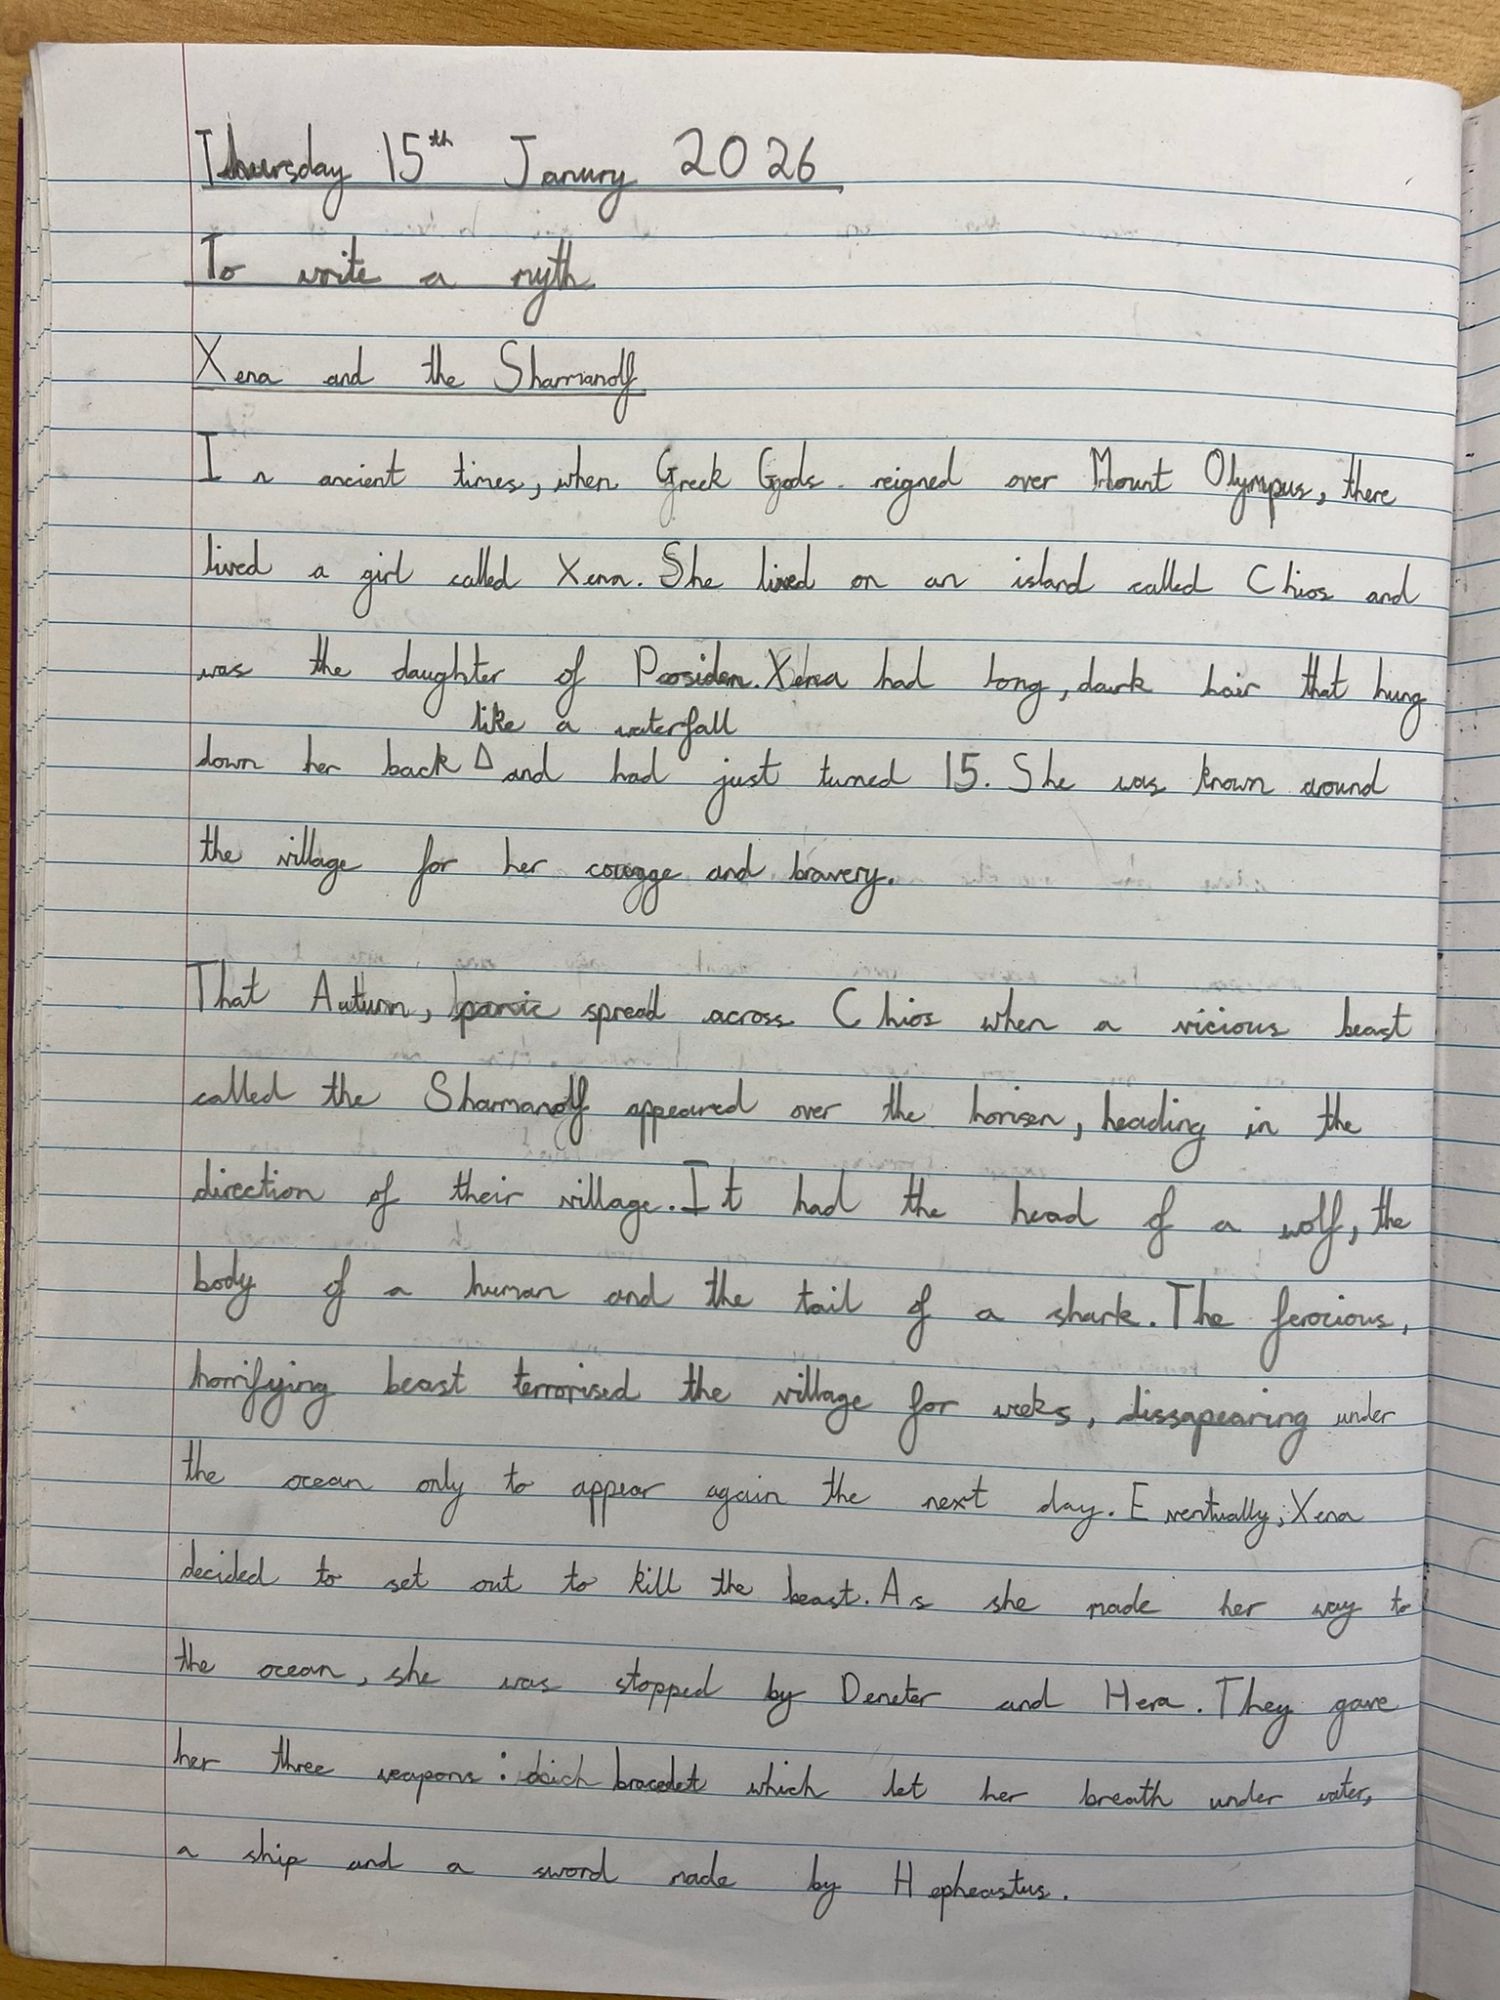 Thursday 15th Janury 2026
To write a myth
Xena and the Sharmanolf
In ancient times, when Greek Gods reigned over Mount Olympus, there
lived a girl called Xena. She lived on an island called Chios and
was the daughter of Posiden. Xena had long, dark hair that hung
like a waterfall
down her back and had just turned 15. She was known around
the village for her courage and bravery.
That Autumn, panic spread across Chios when a vicious beast
called the Sharmanolf appeared over the horisen, heading in the
direction of their village. It had the head of a wolf, the
body of a human and the tail of a shark. The ferocious,
horrifying beast terrorised the village for weeks, dissapearing under
the ocean only to appear again the next day. Eventually, Xena
decided to set out to kill the beast. As she made her way to
the ocean, she was stopped by Demeter and Hera. They gave
her three weapons: bracelet which let her breath under water,
a ship and a sword made by Hepheastus.